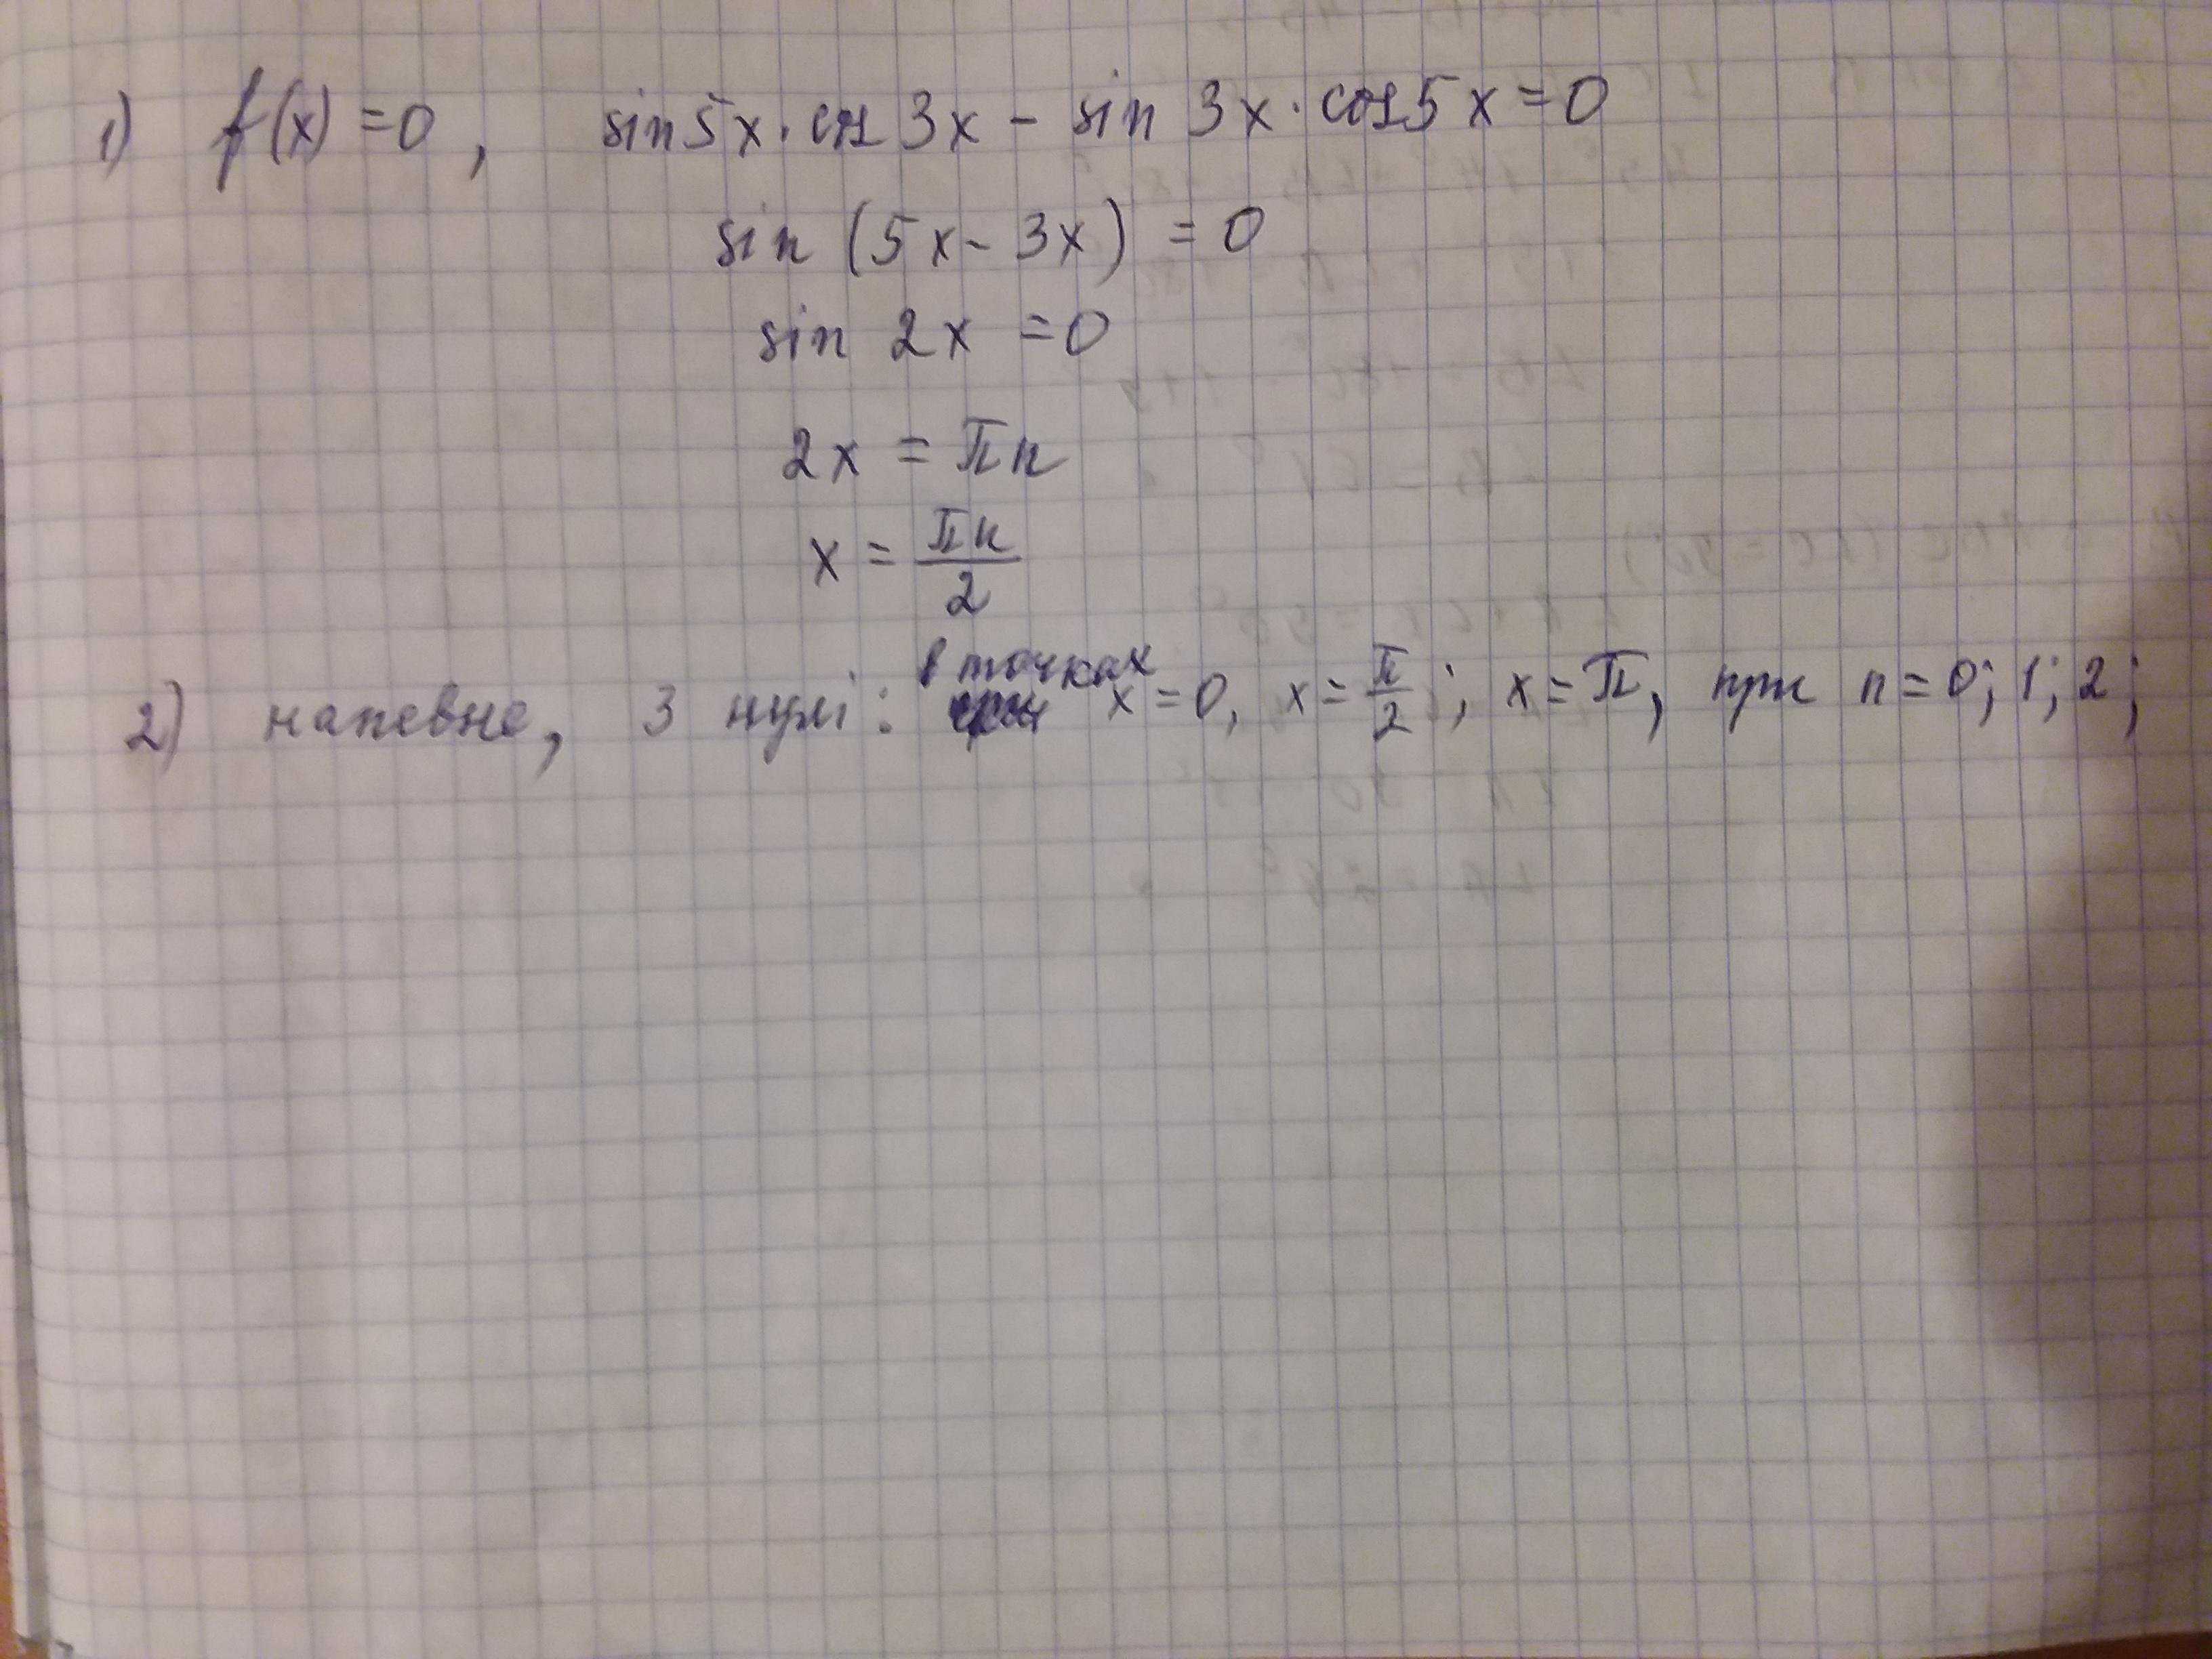 1) f(x) = 0, sin 5x · cos 3x - sin 3x · cos 5x = 0
sin (5x - 3x) = 0
sin 2x = 0
2x = πn
x = πn/2
в точках
2) напевне, 3 нулі: x = 0, x = π/2; x = π, при n = 0; 1; 2;